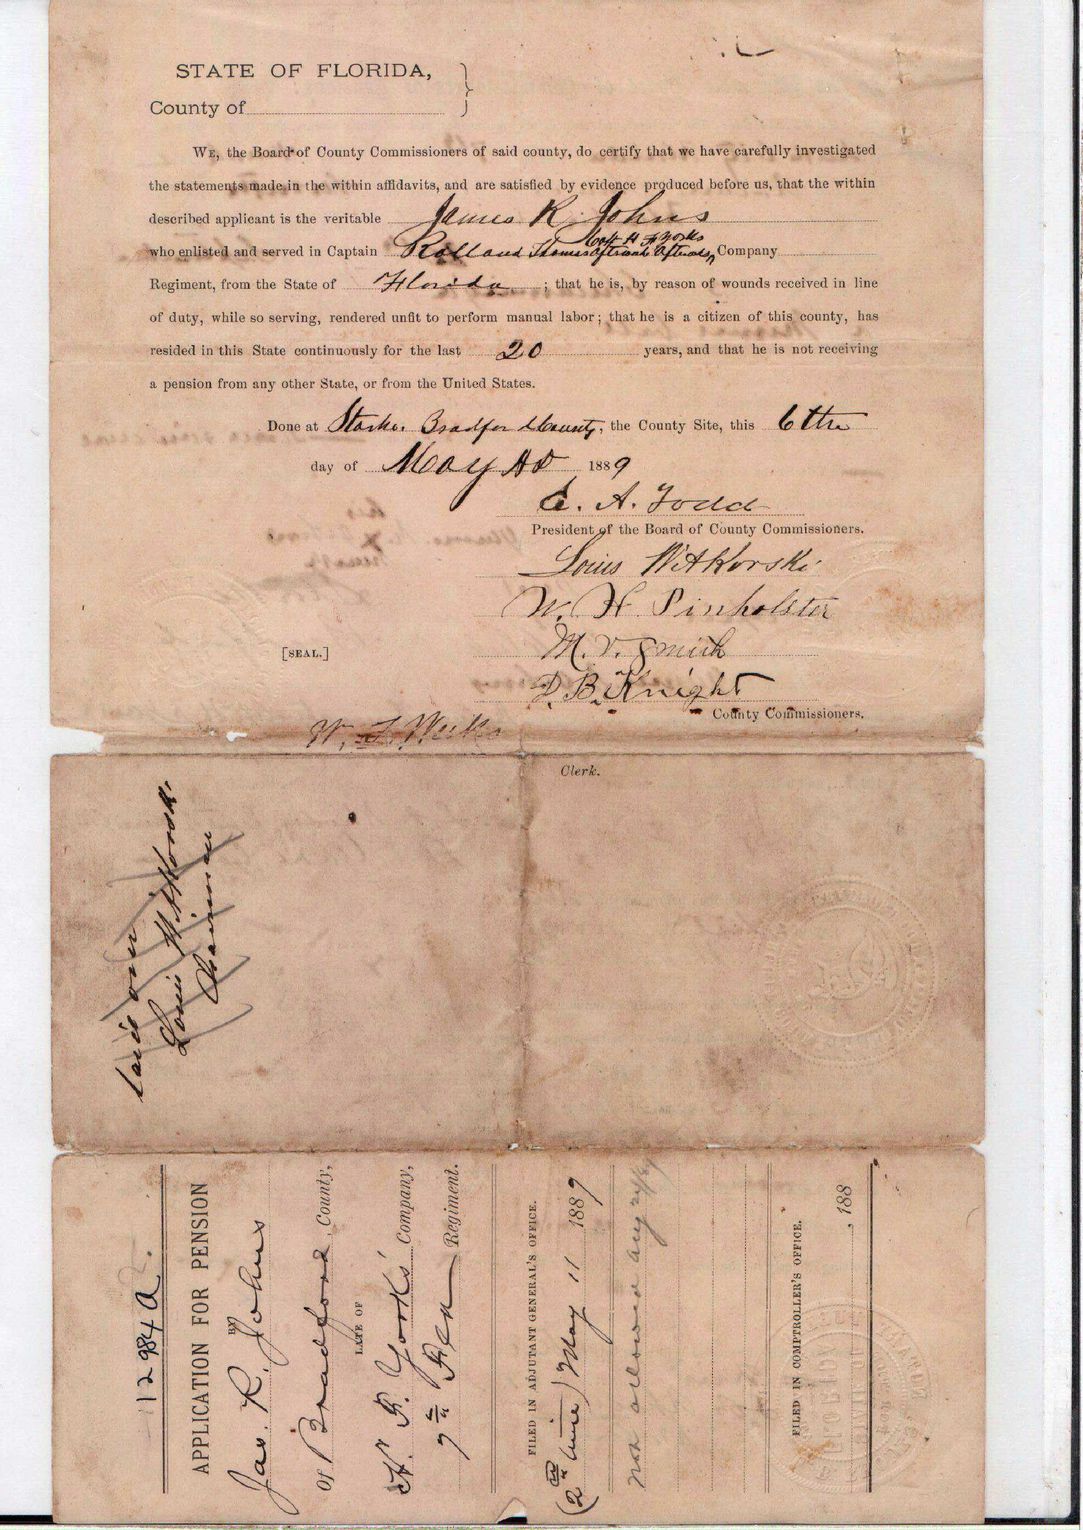 STATE OF FLORIDA,
County of
WE, the Board of County Commissioners of said county, do certify that we have carefully investigated
the statements made in the within affidavits, and are satisfied by evidence produced before us, that the within
described applicant is the veritable James R. Johns
Capt H F Yorks
who enlisted and served in Captain Rolland Thomas Company
Regiment, from the State of Florida ; that he is, by reason of wounds received in line
of duty, while so serving, rendered unfit to perform manual labor ; that he is a citizen of this county, has
resided in this State continuously for the last 20 years, and that he is not receiving
a pension from any other State, or from the United States.
Done at Starke. Bradford County, the County Site, this 6th
day of May AD 1889
C. A. Todd
President of the Board of County Commissioners.
Louis Witkovski
W. H. Pinholster
M. V. Smith
[SEAL.]
D. B. Knight
County Commissioners.
W. F. Weeks
Clerk.
laid over
Louis Witkovski
Chairman
112984 A.
APPLICATION FOR PENSION
BY
Jas. R. Johns
of Bradford County,
LATE OF
H. F. Yorks' Company,
7th Regiment.
FILED IN ADJUTANT GENERAL'S OFFICE.
(2nd time) May 11 1889
not allowed
FILED IN COMPTROLLER'S OFFICE.
, 188